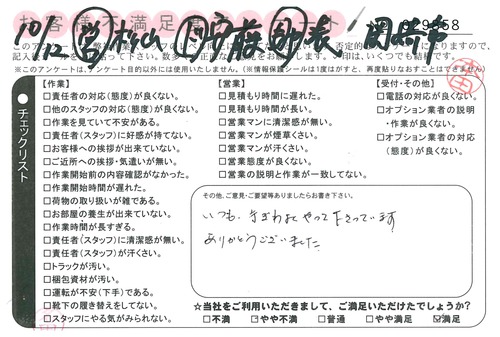 お客様不満足度アンケート
10/12 営 松山 助
029658
※このアンケートは、アンケート目的以外には使用いたしません。(※情報保護シールは1度はがすと、再度貼りなおすことはできません)
チェックリスト
【作業】
□責任者の対応(態度)が良くない。
□他のスタッフの対応(態度)が良くない。
□作業を見ていて不安がある。
□責任者(スタッフ)に好感が持てない。
□お客様への挨拶が出来ていない。
□ご近所への挨拶・気遣いが無い。
□作業開始前の内容確認がなかった。
□作業開始時間が遅れた。
□荷物の取り扱いが雑である。
□お部屋の養生が出来ていない。
□作業時間が長すぎる。
□責任者(スタッフ)に清潔感が無い。
□責任者(スタッフ)が汗くさい。
□トラックが汚い。
□梱包資材が汚い。
□運転が不安(下手)である。
□靴下の履き替えをしてない。
□スタッフにやる気がみられない。
【営業】
□見積もり時間に遅れた。
□見積もり時間が長い。
□営業マンに清潔感が無い。
□営業マンが煙草くさい。
□営業マンが汗くさい。
□営業態度が良くない。
□営業の説明と作業が一致してない。
【受付・その他】
□電話の対応が良くない。
□オプション業者の説明
・作業が良くない。
□オプション業者の対応
(態度)が良くない。
その他、ご意見・ご要望等ありましたらお書き下さい。
いつも、きぎわよくやって下さっています
ありがとうございました
☆当社をご利用いただきまして、ご満足いただけたでしょうか?
□不満 □やや不満 □普通 □やや満足 ☑満足